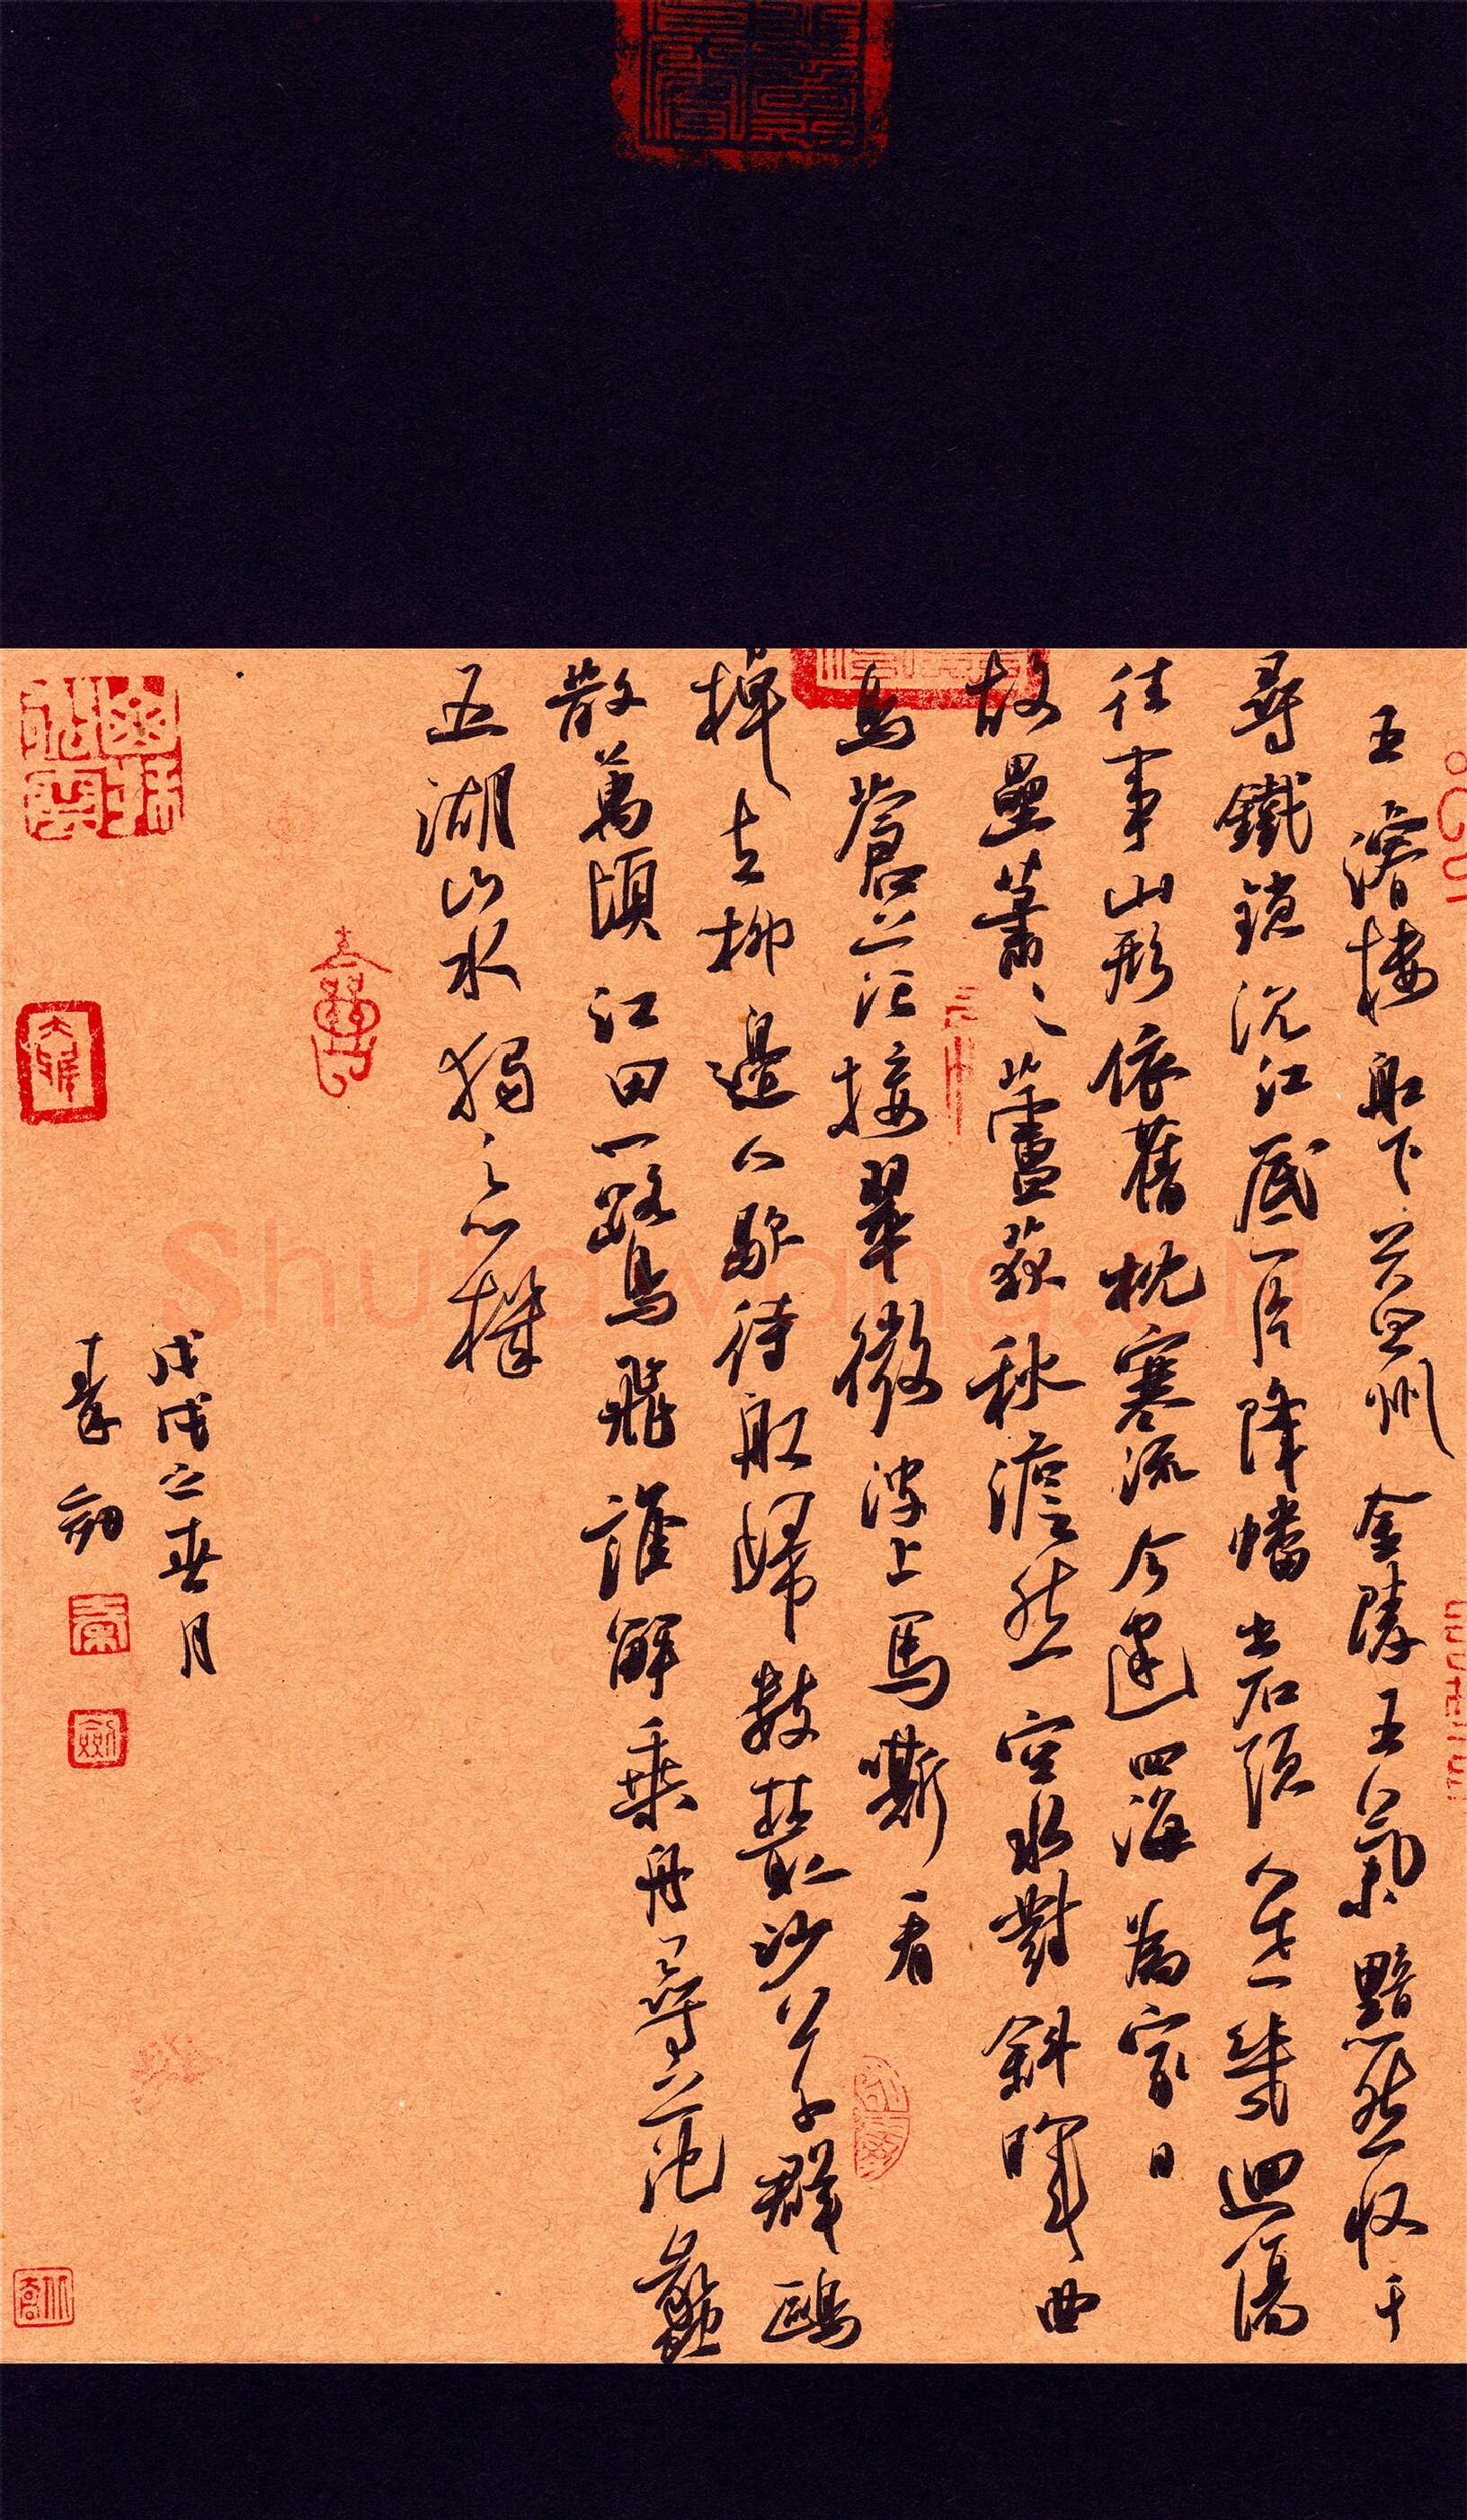 王濬樓船下益州金陵王氣黯然收千
尋鐵鎖沉江底一片降幡出石頭人世幾迴傷
往事山形依舊枕寒流今逢四海為家日
故壘蕭〻蘆荻秋澹然空水對斜暉曲
島蒼茫接翠微波上馬嘶看
棹去柳邊人歇待船歸數叢沙草群鷗
散萬頃江田一鷺飛誰解乘舟尋范蠡
五湖山水獨忘機
戊戌之春月
秦劍
Shufawang.CN